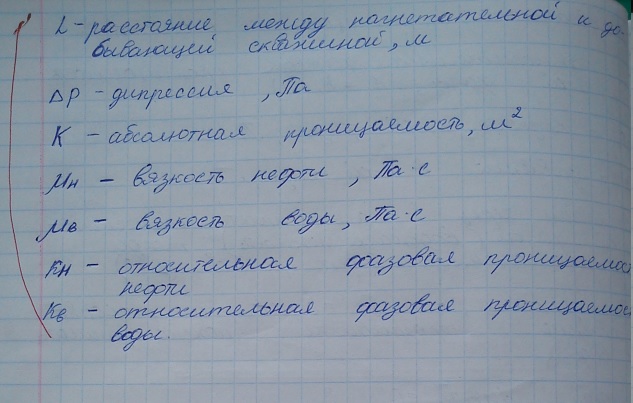 L - расстояние между нагнетательной и до-
бывающей скважиной, м
ΔP - дипрессия, Па
К - абсолютная проницаемость, м²
μн - вязкость нефти, Па·с
μв - вязкость воды, Па·с
Кн - относительная фазовая проницаемос
нефти
Кв - относительная фазовая проницаемос
воды.